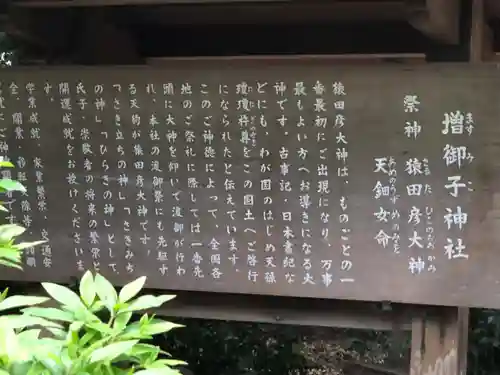 増御子神社
ますみこ
祭神 猿田彦大神
さるた ひこのおおかみ
天鈿女命
あめのうずめのみこと
猿田彦大神は、ものごとの一
番最初にご出現になり、万事
最もよい方へお導きになる大
神です。古事記・日本書紀な
どにも、わが国のはじめ天孫
瓊瓊杵尊をこの国土へご啓行
になられたと伝えています。
このご神徳によって、全国各
地のご祭礼に際しては一番先
頭に大神を仰いで渡御が行わ
れ、本社の渡御祭にも先駆す
る天狗が猿田彦大神です。
「さき立ちの神」「さきみち
の神」「ひらきの神」として、
氏子、崇敬者の将来の繁栄と
開運成就をお授けくださいま
す。
学業成就、家業繁栄、交通安
全、開業、